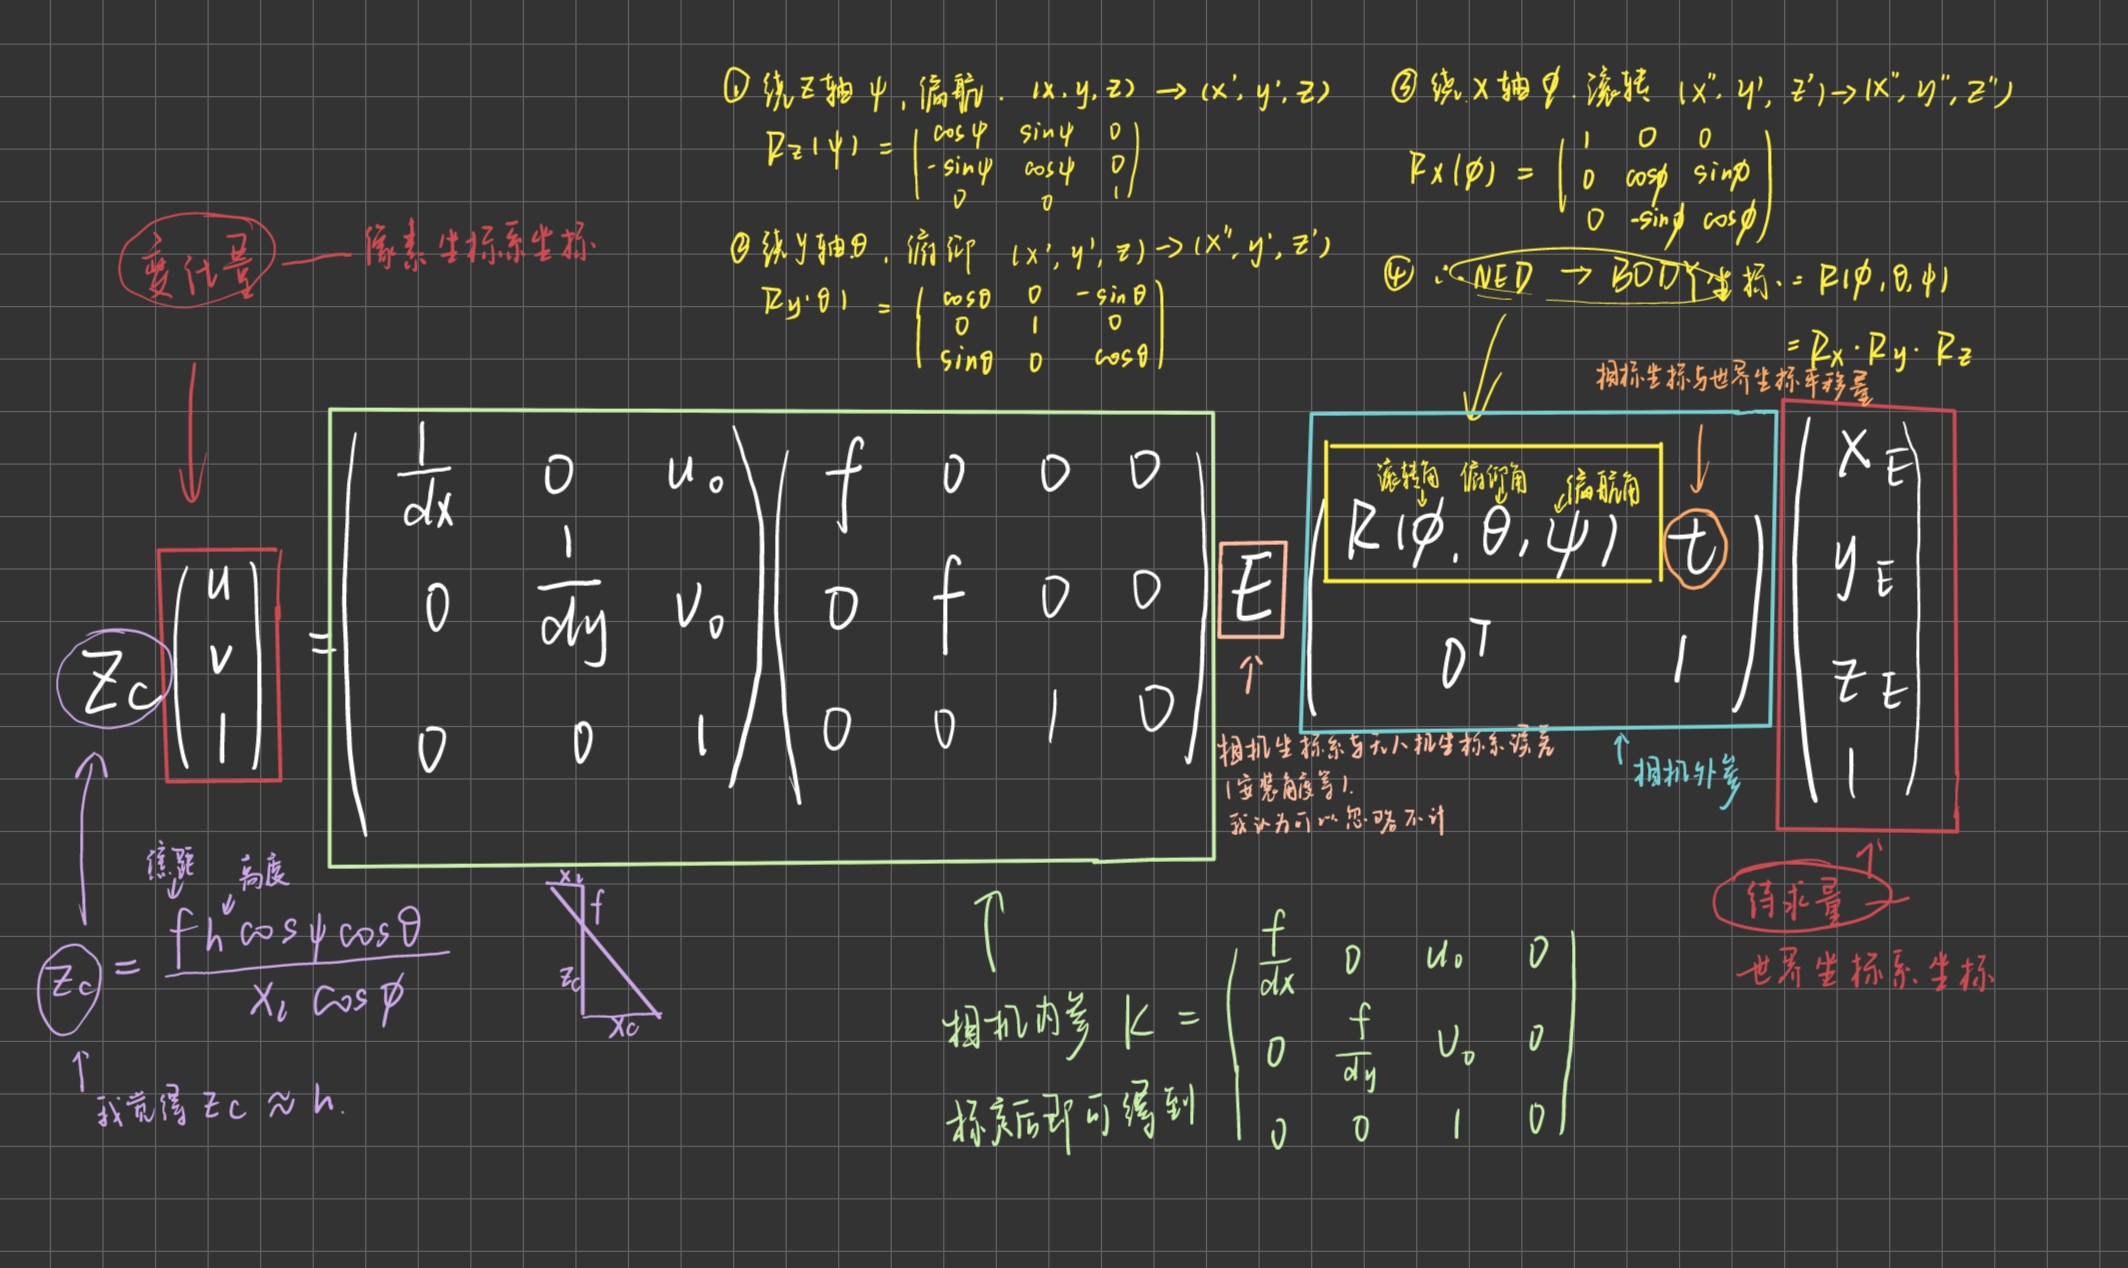 ① 绕Z轴ψ, 偏航. (x, y, z) → (x', y', z)
Rz(ψ) = ( cosψ sinψ 0
-sinψ cosψ 0
0 0 1 )
② 绕y轴θ, 俯仰 (x', y', z) → (x'', y', z')
Ry(θ) = ( cosθ 0 -sinθ
0 1 0
sinθ 0 cosθ )
③ 绕x轴φ. 滚转 (x'', y', z') → (x'', y'', z'')
Rx(φ) = ( 1 0 0
0 cosφ sinφ
0 -sinφ cosφ )
④ ∴ NED → BODY坐标. = R(φ, θ, ψ)
= Rx · Ry · Rz
变化量 — 像素坐标系坐标
相标坐标与世界坐标平移量
Zc ( u
v
1 )
=
( 1/dx 0 u₀
0 1/dy v₀
0 0 1 )
( f 0 0 0
0 f 0 0
0 0 1 0 )
E
滚转角 俯仰角 偏航角
( R(φ, θ, ψ) t
0ᵀ 1 )
( X_E
y_E
z_E
1 )
相机坐标系与无人机坐标系误差
(安装角度等).
我认为可以忽略不计
相机外参
待求量
世界坐标系坐标
焦距 高度
Zc = f h cosψ cosθ / x₁ cosφ
我觉得 Zc ≈ h.
x₁
f
Zc
Xc
相机内参 K =
标定后即可得到
( f/dx 0 u₀ 0
0 f/dy v₀ 0
0 0 1 0 )